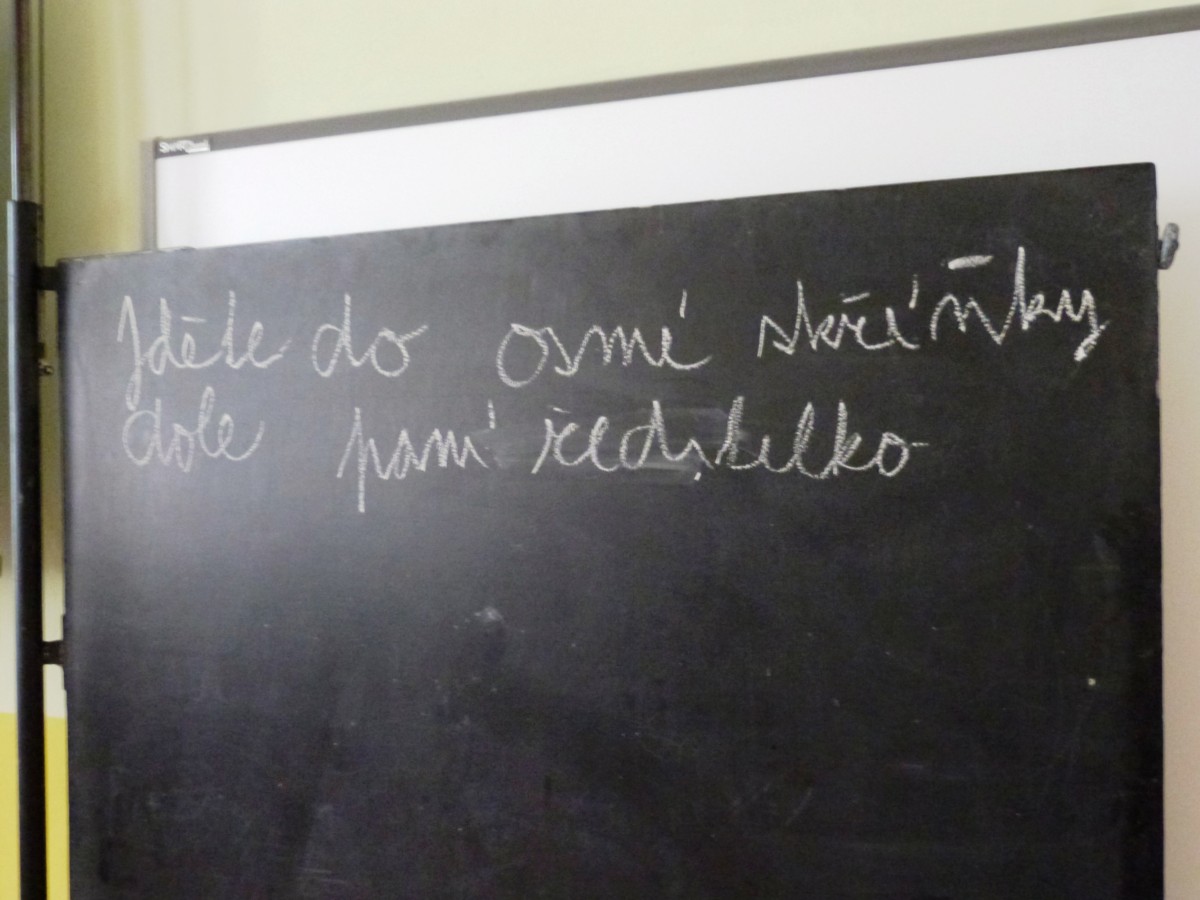 Jděte do osmé skříňky
dole paní ředitelko